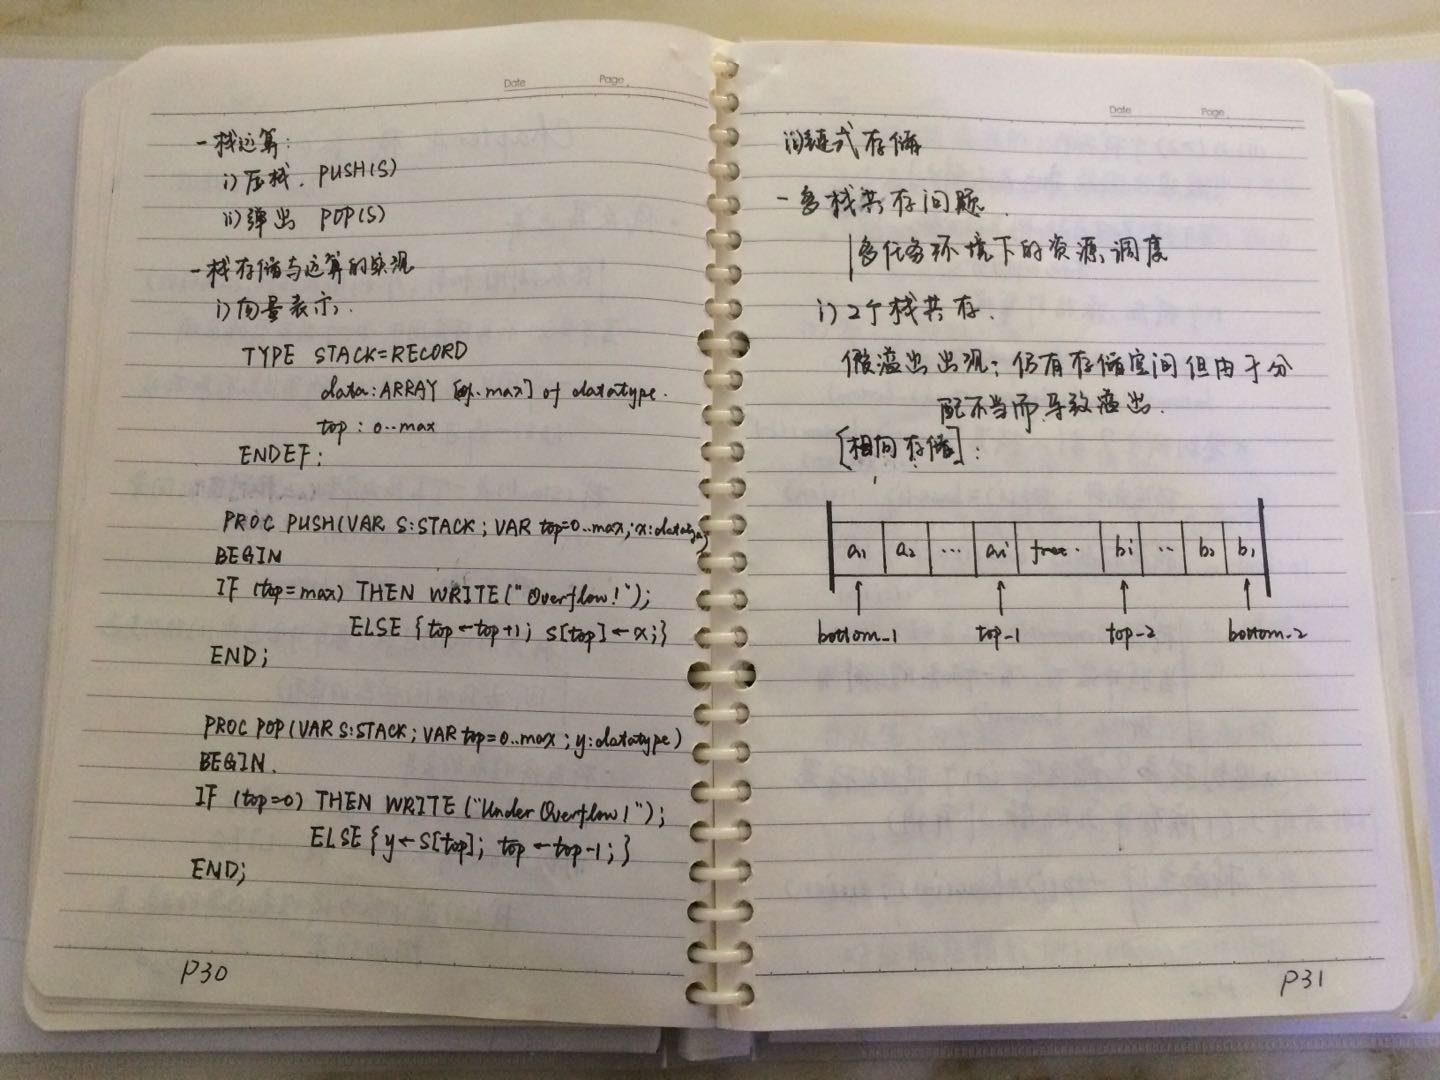 Date Page
-栈运算:
i) 压栈. PUSH(S)
ii) 弹出 POP(S)
-栈存储与运算的实现
i) 向量表示.
TYPE STACK=RECORD
data:ARRAY [..max] of datatype.
top: 0..max
ENDEF;
PROC PUSH(VAR S:STACK; VAR top=0..max; x:datatype)
BEGIN
IF (top=max) THEN WRITE("Overflow!");
ELSE {top←top+1; s[top]←x;}
END;
PROC POP(VAR S:STACK; VAR top=0..max; y:datatype)
BEGIN.
IF (top=0) THEN WRITE("Under Overflow!");
ELSE {y←S[top]; top←top-1;}
END;
P30
Date Page
ii) 链式存储
-多栈共存问题.
|多任务环境下的资源调度
i) 2个栈共存.
假溢出出现: 仍有存储空间但由于分
配不当而导致溢出.
[相向存储]:
a1 a2 ... ai free. bi .. b2 b1
bottom-1 top-1 top-2 bottom-2
P31